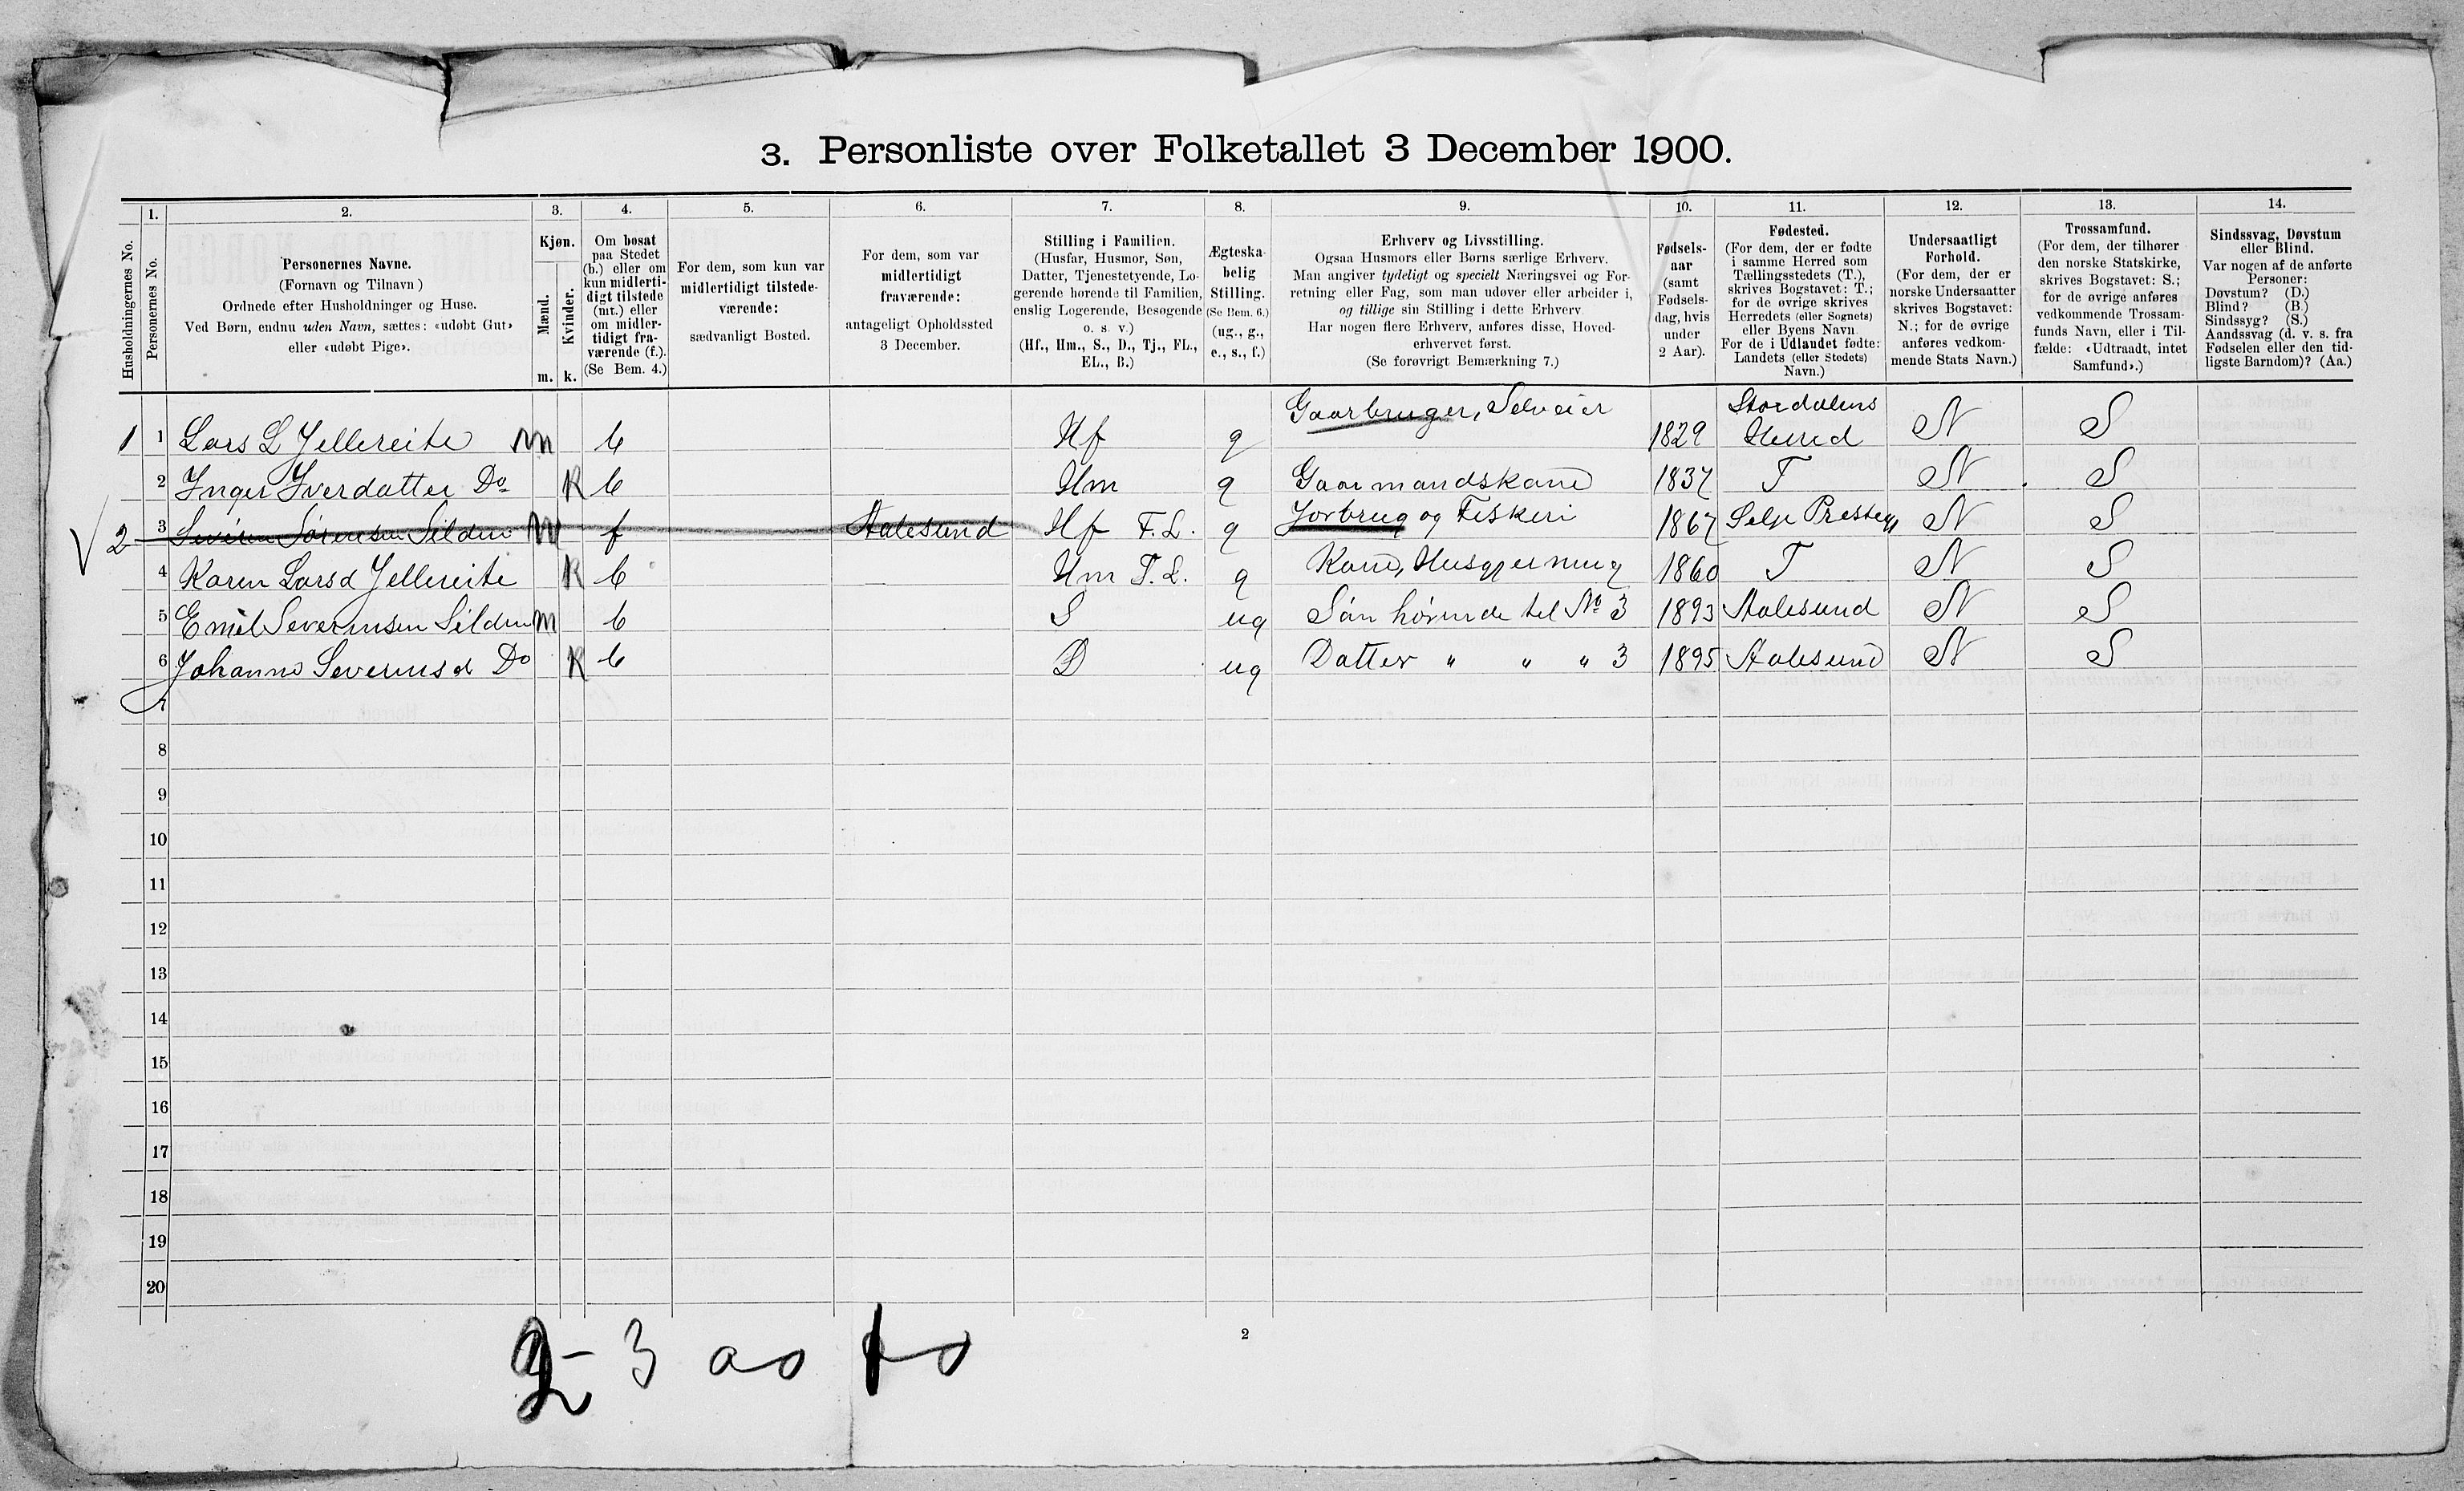 3. Personliste over Folketallet 3 December 1900.
Husholdningernes No.
1.
Personernes No.
2.
Personernes Navne.
(Fornavn og Tilnavn)
Ordnede efter Husholdninger og Huse.
Ved Børn, endnu uden Navn, sættes: «udøbt Gut»
eller «udøbt Pige».
3.
Kjøn.
Mænd.
Kvinder.
m.
k.
4.
Om bosat
paa Stedet
(b.) eller om
kun midlerti-
digt tilstede
(mt.) eller
om midler-
tidigt fra-
værende (f.).
(Se Bem. 4.)
5.
For dem, som kun var
midlertidigt tilstede-
værende:
sædvanligt Bosted.
6.
For dem, som var
midlertidigt
fraværende:
antageligt Opholdssted
3 December.
7.
Stilling i Familien.
(Husfar, Husmor, Søn,
Datter, Tjenestetyende, Lo-
gerende hørende til Familien,
enslig Logerende, Besøgende
o. s. v.)
(Hf., Hm., S., D., Tj., FL.,
EL., B.)
8.
Ægteska-
belig
Stilling.
(Se Bem. 6.)
(ug., g.,
e., s., f.)
9.
Erhverv og Livsstilling.
Ogsaa Husmors eller Børns særlige Erhverv.
Man angiver tydeligt og specielt Næringsvei og For-
retning eller Fag, som man udøver eller arbeider i,
og tillige sin Stilling i dette Erhverv.
Har nogen flere Erhverv, anføres disse, Hoved-
erhvervet først.
(Se forøvrigt Bemærkning 7.)
10.
Fødsels-
aar
(samt
Fødsels-
dag, hvis
under
2 Aar).
11.
Fødested.
(For dem, der er fødte
i samme Herred som
Tællingsstedets (T.),
skrives Bogstavet: T.;
for de øvrige skrives
Herredets (eller Sognets)
eller Byens Navn.
For de i Udlandet fødte:
Landets (eller Stedets)
Navn.)
12.
Undersaatligt
Forhold.
(For dem, der er
norske Undersaatter
skrives Bogstavet:
N.; for de øvrige
anføres vedkom-
mende Stats Navn.)
13.
Trossamfund.
(For dem, der tilhører
den norske Statskirke,
skrives Bogstavet: S.;
for de øvrige anføres
vedkommende Trossam-
funds Navn, eller i Til-
fælde: «Udtraadt, intet
Samfund».)
14.
Sindssvag, Døvstum
eller Blind.
Var nogen af de anførte
Personer:
Døvstum? (D.)
Blind? (B.)
Sindssyg? (S.)
Aandssvag (d. v. s. fra
Fødselen eller den tid-
ligste Barndom)? (Aa.)
1 1 Lars L Yellereite m b Hf g Gaarbruger, Selveier 1829 Stordalens Herred N S
2 Inger Iverdatter Do K b Hm g Gaarmandskone 1837 T N S
2 3 Severin Sørensen Silden m f Aalesund Hf F.L. g Jorbrug og Fiskeri 1867 Selje Presteg N S
4 Karen Larsd Yellereite K b Hm F.L. g Kone, Husgjerning 1860 T N S
5 Emil Severinsen Silden m b S ug Søn hørende til No 3 1893 Aalesund N S
6 Johanne Severinsd Do K b D ug Datter " " " 3 1895 Aalesund N S
7
8
9
10
11
12
13
14
15
16
17
18
19
20
2
2 - 3